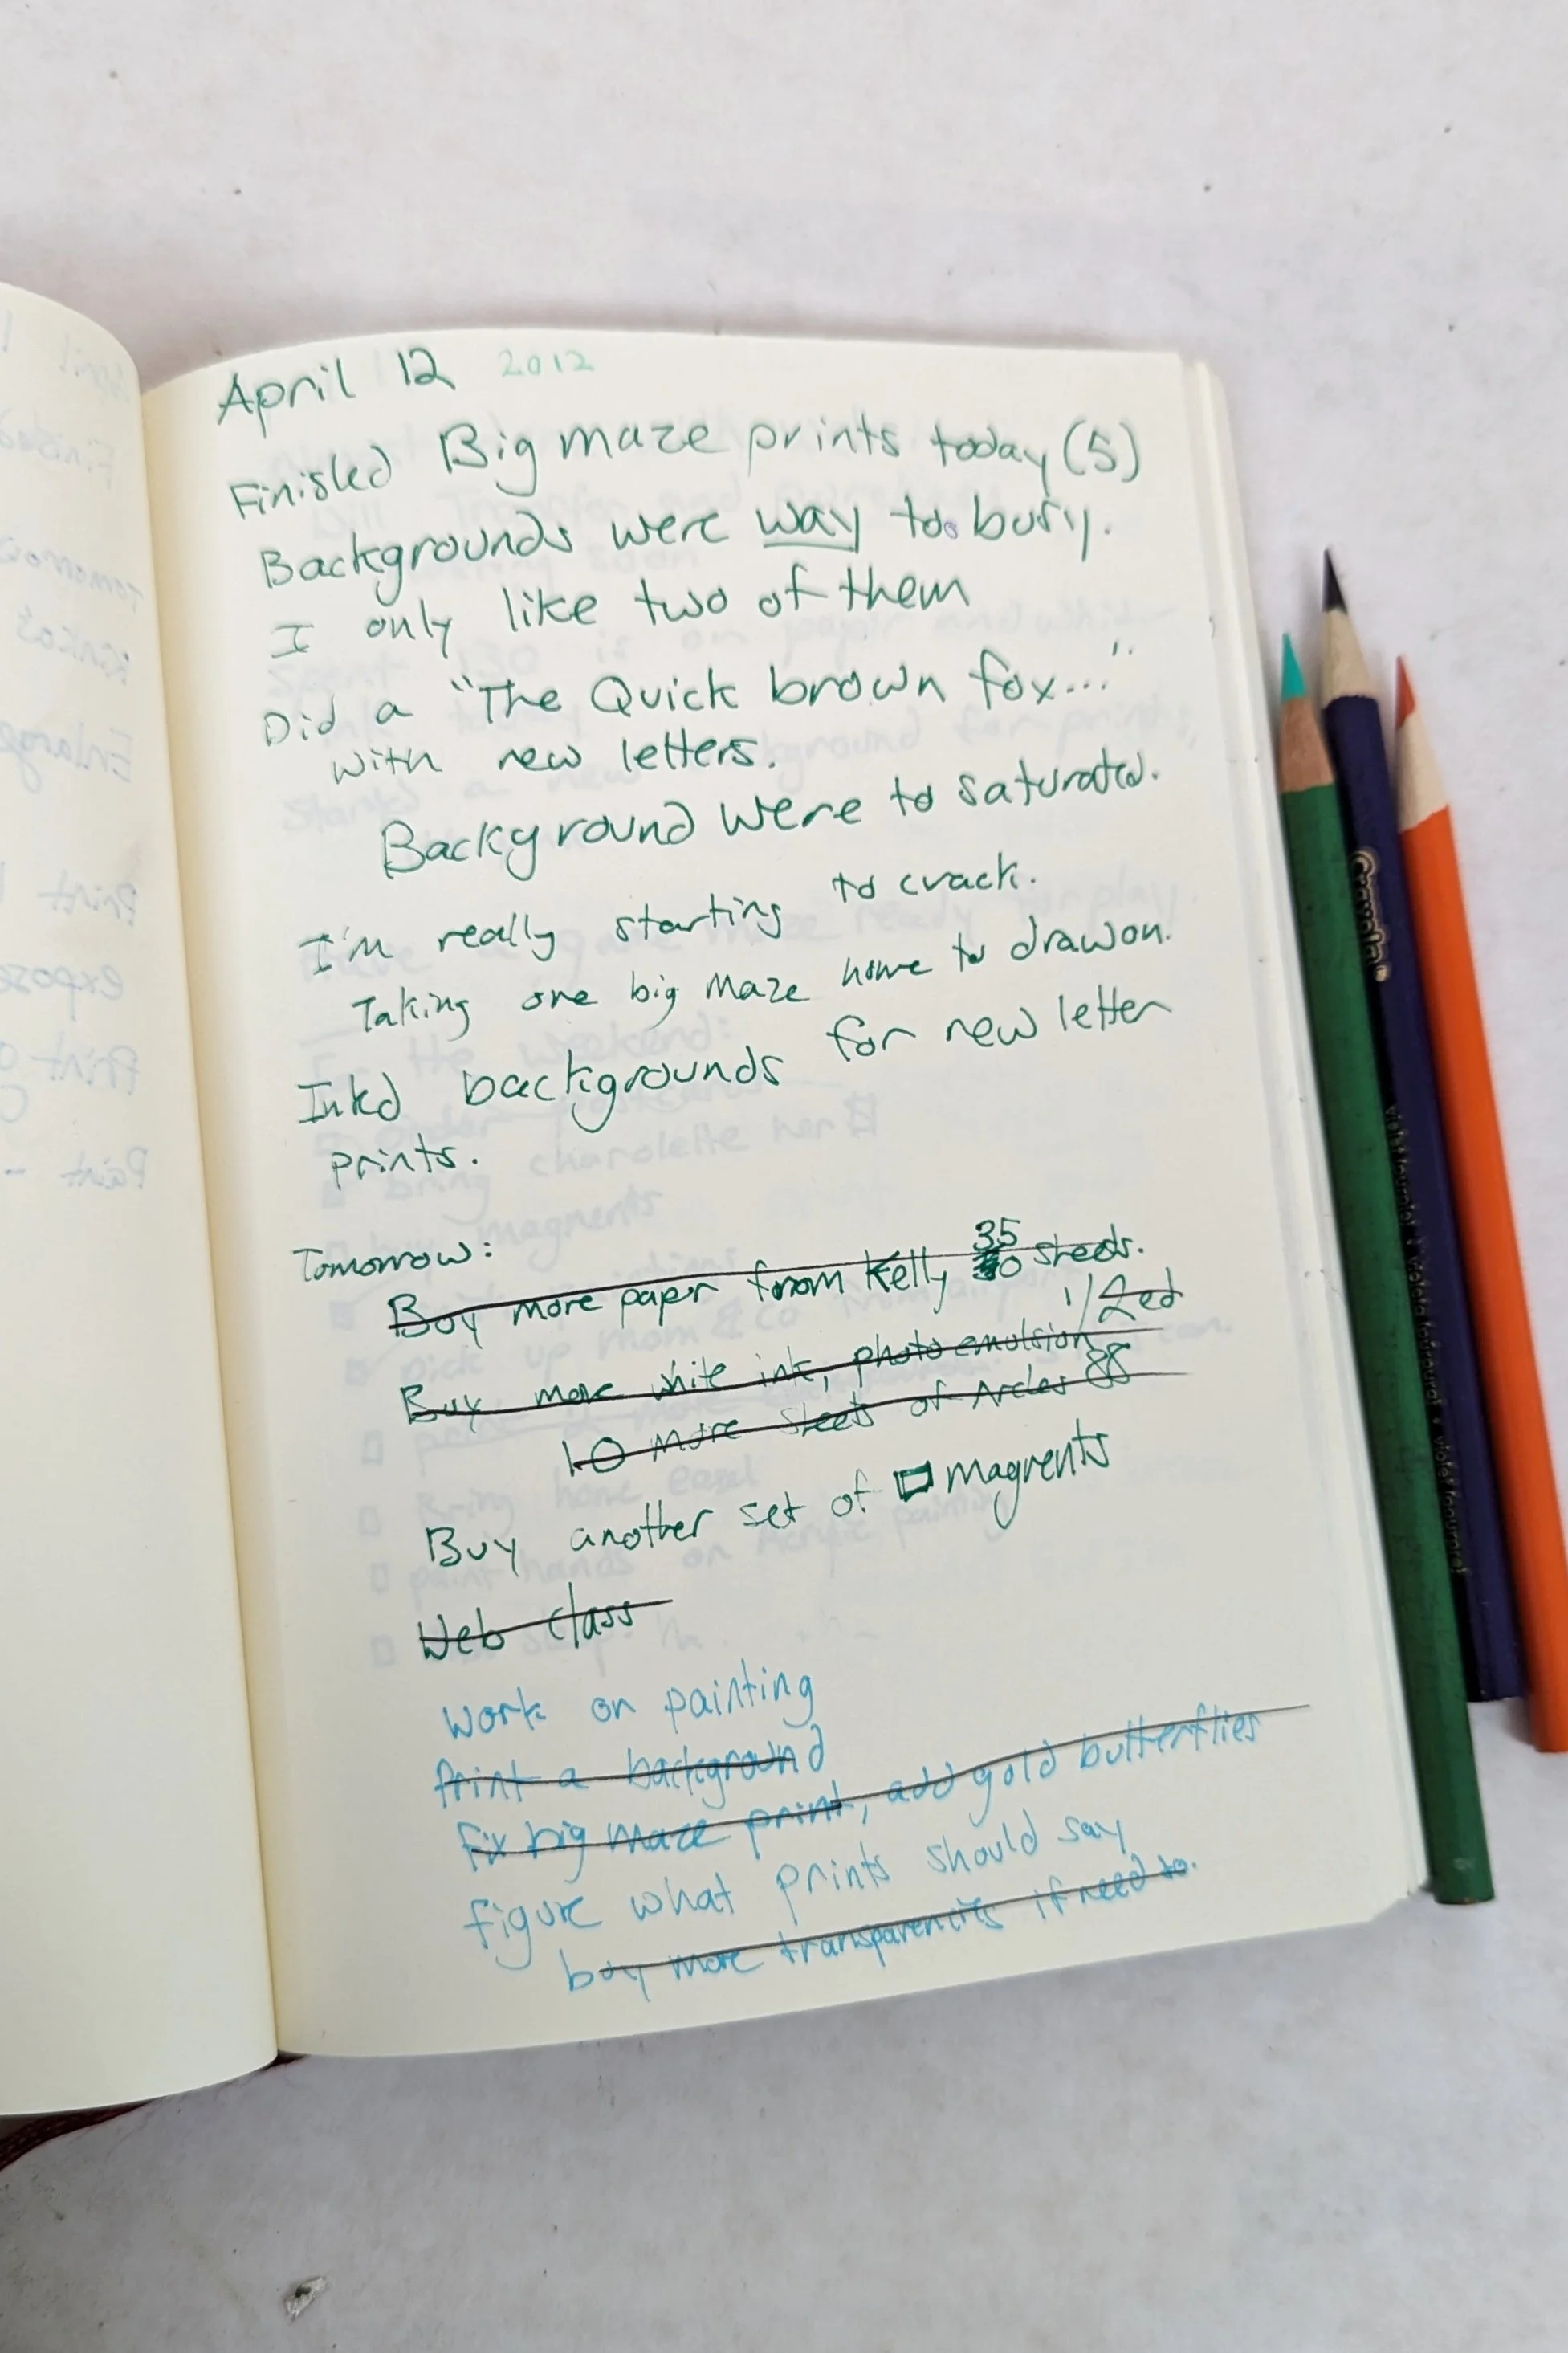 April 12 2012
Finisled Big maze prints today (5)
Backgrounds were way too busiy.
I only like two of them
Did a "The Quick brown fox..."
with new letters.
Background were to saturated.
I'm really starting to crack.
Taking one big maze home to draw on.
Inkd backgrounds for new letter
prints.
Tomorrow:
Buy more paper from Kelly 35 sheets.
Buy more white ink, photo emulsion
10 more sheets of Arches 88
Buy another set of magnents
Web class
work on painting
print a background
fix big maze print, add gold butterflies
figure what prints should say
buy more transparencies if need to.
Crayola